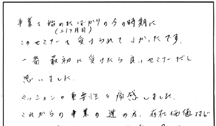 事業を始めたばかりの今の時期に
(二ヶ月目)
このセミナーを受けられてよかったです。
一番最初に受けたら良いセミナーだと
思いました。
ミッションの重要性を痛感しました。
これからの事業の進め方、存在価値など